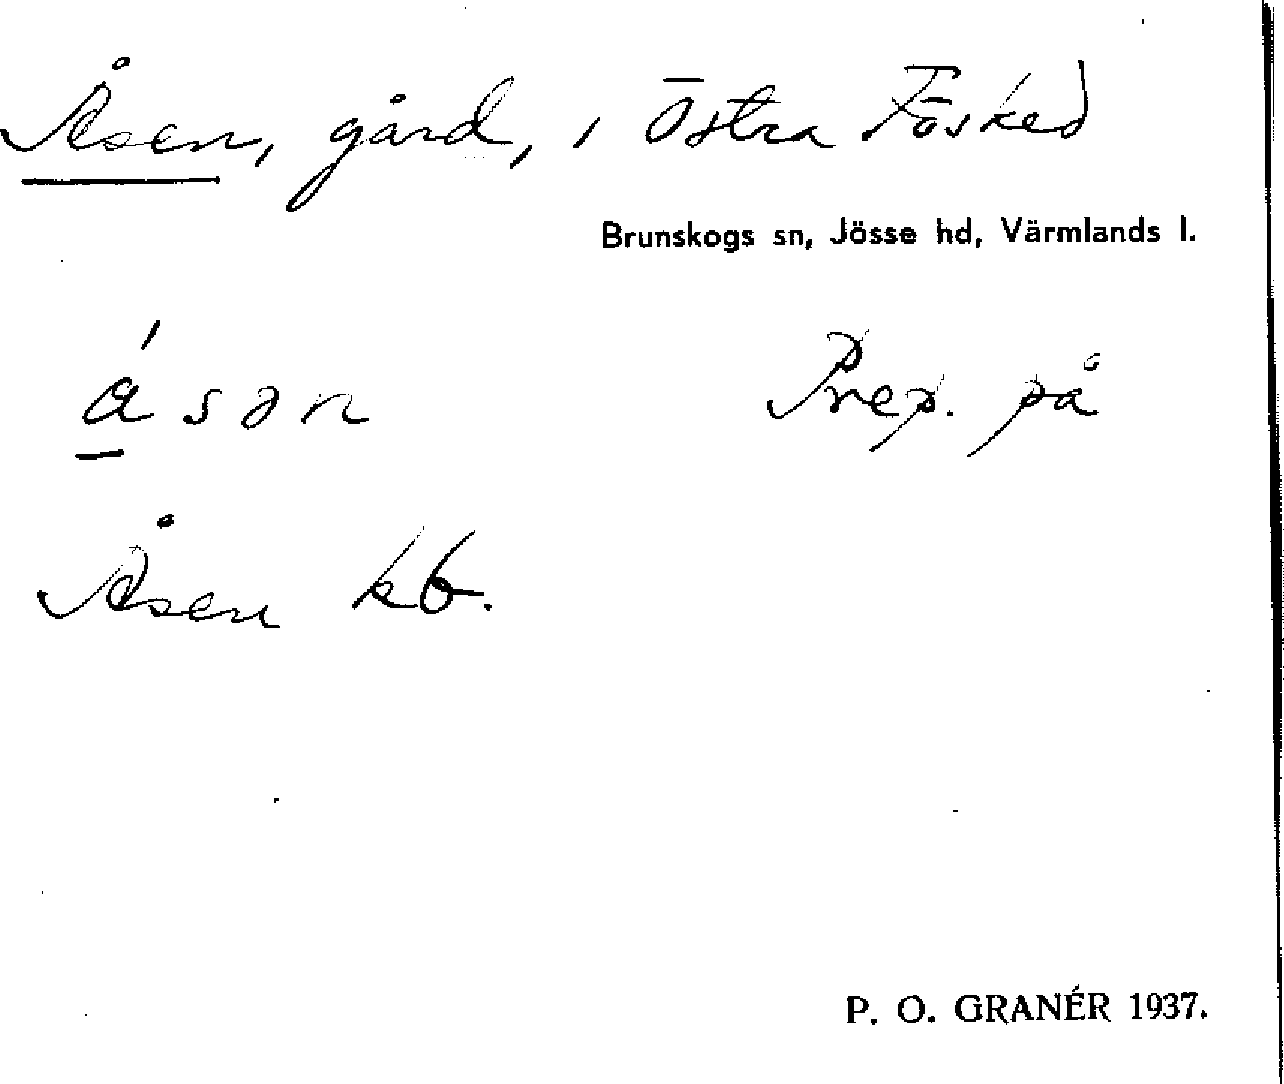 Åsen, gård, i Östra Fösked
Brunskogs sn, Jösse hd, Värmlands l.
ásan Prep. på
Åsen kb.
P. O. GRANÉR 1937.